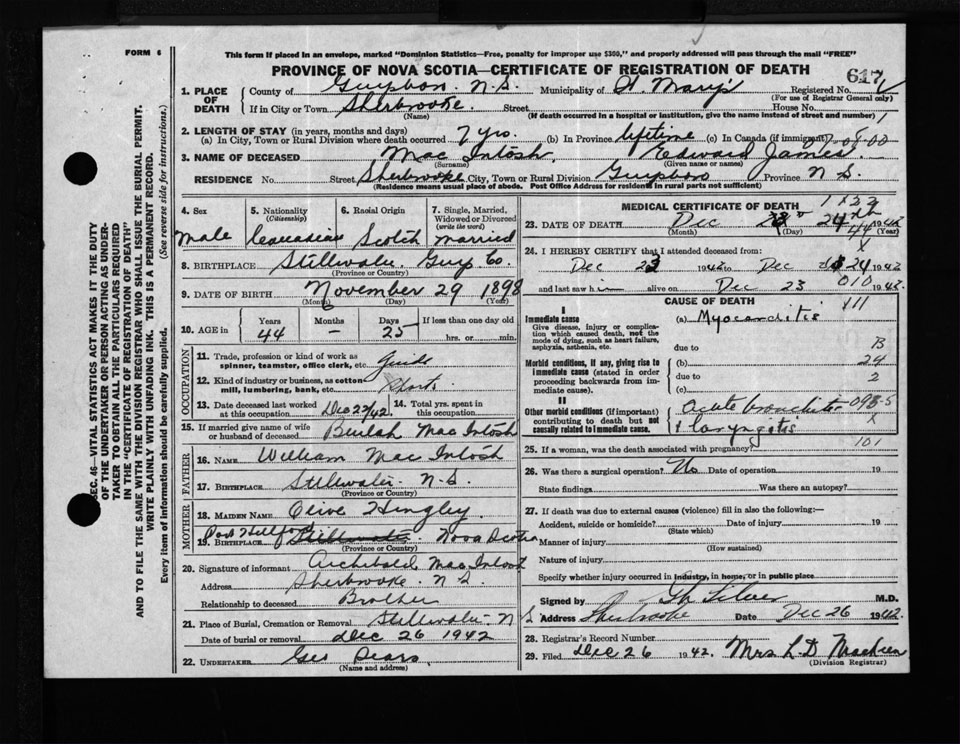 FORM 6
This form if placed in an envelope, marked "Dominion Statistics—Free, penalty for improper use $300," and properly addressed will pass through the mail "FREE"
PROVINCE OF NOVA SCOTIA—CERTIFICATE OF REGISTRATION OF DEATH
617
1. PLACE OF DEATH
County of Guysboro. N.S. Municipality of St Mary's Registered No.
(For use of Registrar General only)
If in City or Town Sherbrooke. Street House No.
(Name) (If death occurred in a hospital or institution, give the name instead of street and number)
2. LENGTH OF STAY (in years, months and days)
(a) In City, Town or Rural Division where death occurred 7 yrs. (b) In Province lifetime (c) In Canada (if immigrant)
3. NAME OF DECEASED Mac Intosh, Edward James.
(Surname) (Given name or names)
RESIDENCE No. Street Sherbrooke City, Town or Rural Division Guysboro Province N S.
(Residence means usual place of abode. Post Office Address for residents in rural parts not sufficient)
4. Sex 5. Nationality (Citizenship) 6. Racial Origin 7. Single, Married, Widowed or Divorced (write the word)
Male Canadian Scotch Married
8. BIRTHPLACE Stillwater. Guys Co.
(Province or Country)
9. DATE OF BIRTH November 29 1898
(Month) (Day) (Year)
10. AGE in Years Months Days If less than one day old
44 – 25 hrs. or min.
OCCUPATION
11. Trade, profession or kind of work as spinner, teamster, office clerk, etc. Guide
12. Kind of industry or business, as cotton mill, lumbering, bank, etc.
13. Date deceased last worked at this occupation Dec 22/42. 14. Total yrs. spent in this occupation
15. If married give name of wife or husband of deceased Beulah Mac Intosh
FATHER
16. NAME William Mac Intosh
17. BIRTHPLACE Stillwater N.S.
(Province or Country)
MOTHER
18. MAIDEN NAME Olive Hingley.
19. BIRTHPLACE Port Hilford Stillwater. Nova Scotia
(Province or Country)
20. Signature of informant Archibald Mac Intosh
Address Sherbrooke. N S.
Relationship to deceased Brother
21. Place of Burial, Cremation or Removal Stillwater N S
Date of burial or removal Dec 26 1942
22. UNDERTAKER Geo Sears.
(Name and address)
MEDICAL CERTIFICATE OF DEATH
23. DATE OF DEATH Dec 24th 1942
(Month) (Day) (Year)
24. I HEREBY CERTIFY that I attended deceased from:
Dec 23 1942 to Dec 24 1942
and last saw him alive on Dec 23 1942.
CAUSE OF DEATH
I
Immediate cause
Give disease, injury or complication which caused death, not the mode of dying, such as heart failure, asphyxia, asthenia, etc.
(a) Myocarditis
due to
Morbid conditions, if any, giving rise to immediate cause (stated in order proceeding backwards from immediate cause).
(b)
due to
(c)
II
Other morbid conditions (if important) contributing to death but not causally related to immediate cause.
acute bronchitis
& laryngitis
25. If a woman, was the death associated with pregnancy?
26. Was there a surgical operation? No Date of operation 19
State findings Was there an autopsy?
27. If death was due to external causes (violence) fill in also the following:—
Accident, suicide or homicide? Date of injury 19
(State which)
Manner of injury
(How sustained)
Nature of injury
Specify whether injury occurred in industry, in home, or in public place
Signed by M.D.
Address Sherbrooke Date Dec 26 1942
28. Registrar's Record Number
29. Filed Dec 26 1942. Mrs. L. D. MacKeen
(Division Registrar)
SEC. 46—VITAL STATISTICS ACT MAKES IT THE DUTY
OF THE UNDERTAKER OR PERSON ACTING AS UNDERTAKER
TO OBTAIN ALL THE PARTICULARS REQUIRED
IN THE "CERTIFICATE OF REGISTRATION OF DEATH"
AND TO FILE THE SAME WITH THE DIVISION REGISTRAR WHO SHALL ISSUE THE BURIAL PERMIT.
WRITE PLAINLY WITH UNFADING INK. THIS IS A PERMANENT RECORD.
Every item of information should be carefully supplied. (See reverse side for instructions.)